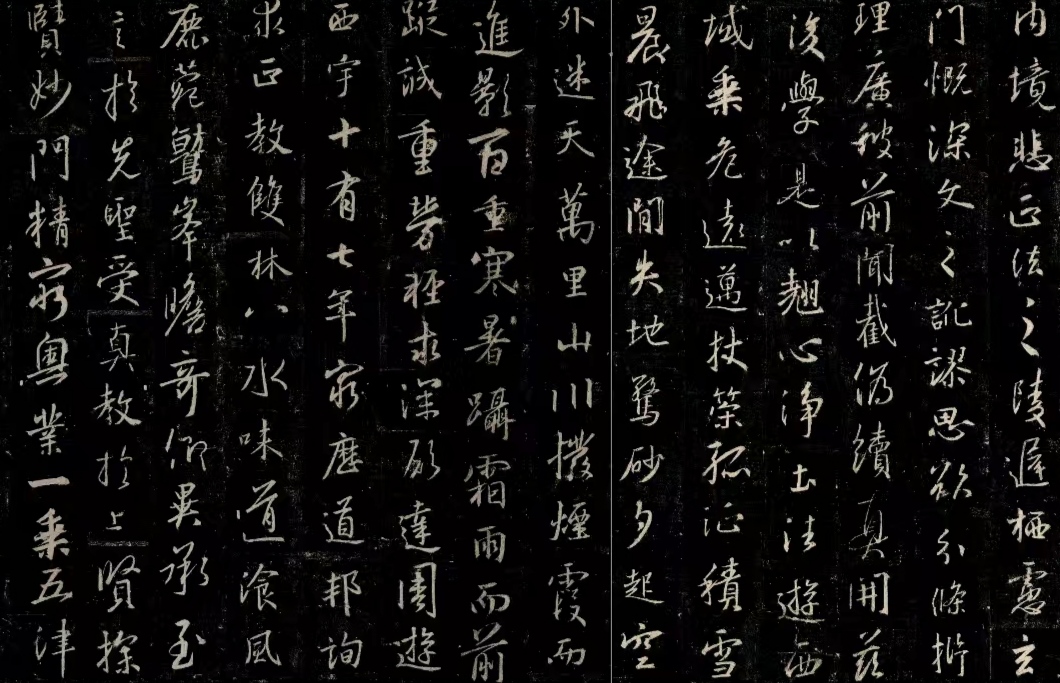 内境悲正法之陵遲栖慮玄
門慨深文之訛謬思欲分條析
理廣彼前聞截偽續真開茲
後學是以翹心淨土法遊西
域乘危遠邁杖策孤征積雪
晨飛途間失地驚砂夕起空
外迷天萬里山川撥煙霞而
進影百重寒暑躡霜雨而前
蹤誠重勞輕求深願達周遊
西宇十有七年窮歷道邦詢
求正教雙林八水味道飡風
鹿菀鷲峯瞻奇仰異承至
言於先聖受真教於上賢探
賾妙門精窮奧業一乘五津